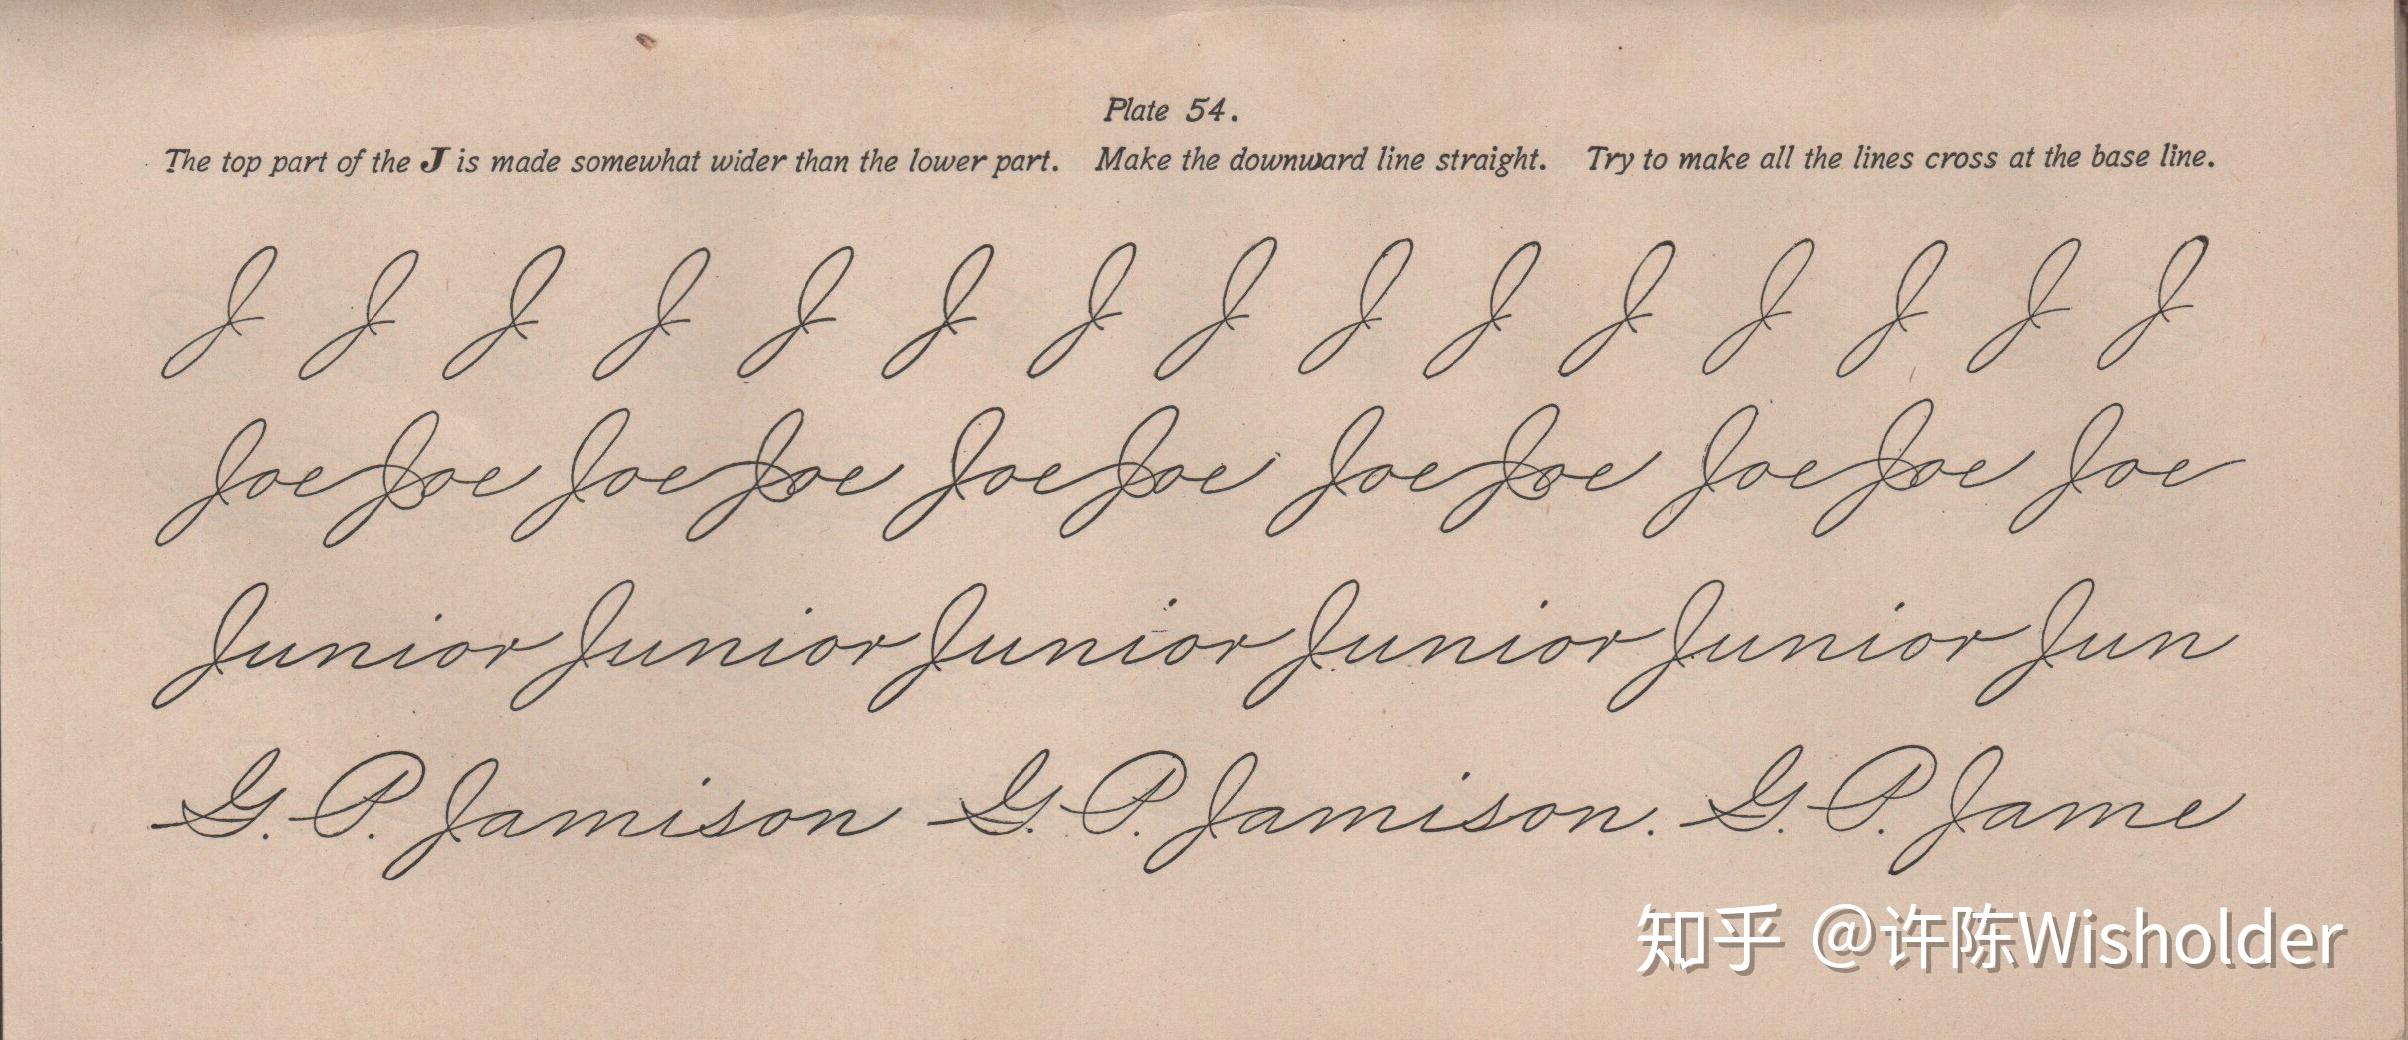 Plate 54.
The top part of the J is made somewhat wider than the lower part. Make the downward line straight. Try to make all the lines cross at the base line.
J J J J J J J J J J J J J J J
Joe Joe Joe Joe Joe Joe Joe Joe Joe Joe Joe
Junior Junior Junior Junior Junior Jun
G. P. Jamison G. P. Jamison. G. P. Jame
知乎 @许陈Wisholder